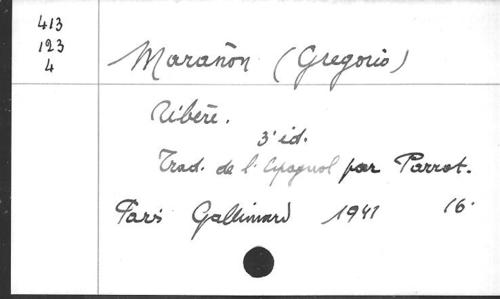 413
123
4
Marañon (Gregorio)
Tibère.
3e éd.
Trad. de l'Espagnol par Parrot.
Paris Gallimard 1941 16.